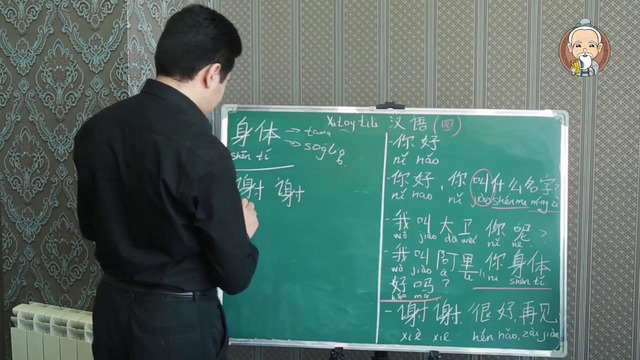 Xitoy tili 汉语 (四)
身体 → tana
→ sog'liq
shēn tǐ
谢 谢
- 你好
nǐ hǎo
- 你好, 你叫什么名字?
nǐ hǎo nǐ jiào shén me míng zi
- 我叫大卫 你呢?
wǒ jiào dà wèi nǐ ne
- 我叫阿里, 你身体
wǒ jiào ā lǐ nǐ shēn tǐ
好吗?
hǎo ma
- 谢谢. 很好, 再见
xiè xiè hěn hǎo, zài jiàn